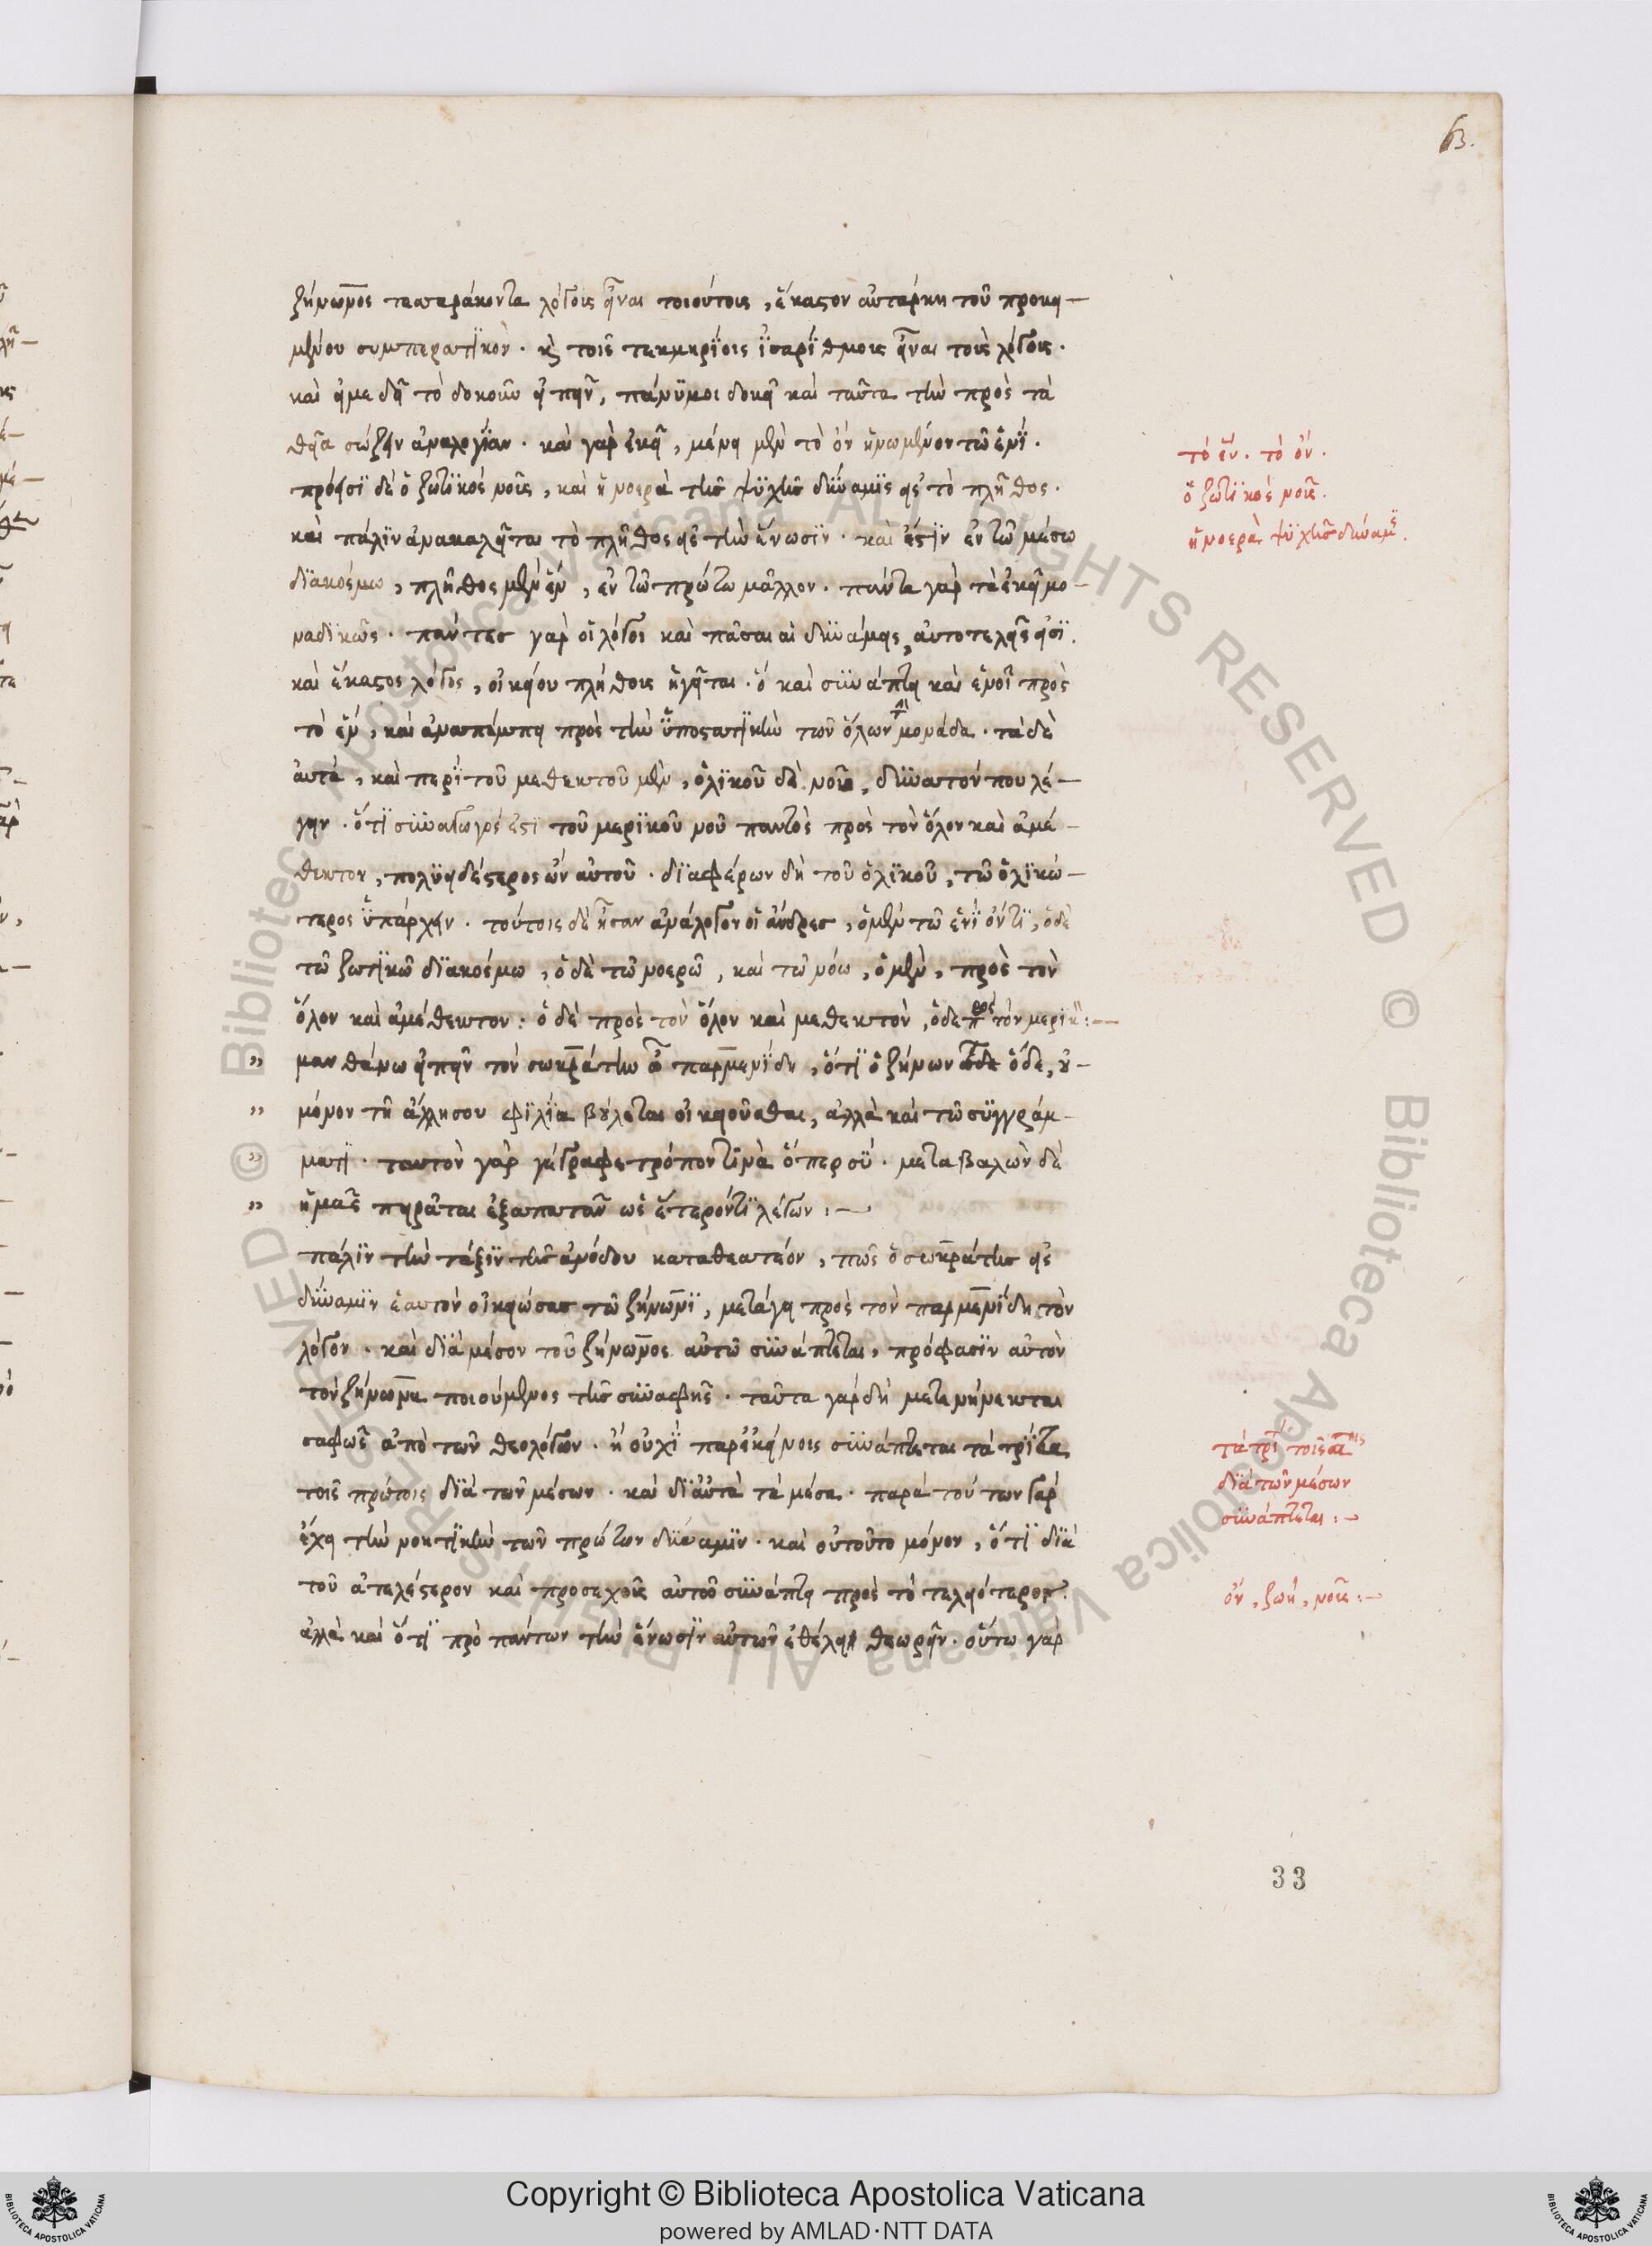 63.
ζήνωνος τεσσαράκοντα λόγους εἶναι τοιούτους, ἕκαστον αὐτάρκη τοῦ προκει-
μένου συμπεραστϊκὸν. καὶ τοῖς τεκμηρΐοις ἰσαρΐθμους εἶναι τοὺς λόγους.
καὶ εἴ με δεῖ τὸ δοκοῦν εἰπεῖν, πάνϋ μοι δοκεῖ καὶ ταῦτα τὴν πρὸς τὰ
θεῖα σώζειν ἀναλογΐαν. καὶ γὰρ ἐκεῖ, μένει μὲν τὸ ὂν ἡνωμένον τῶ ἑνΐ.
πρόεισϊ δὲ ὁ ζωτϊκὸς νοῦς, καὶ ἡ νοερὰ τῆς ψϋχῆς δύναμϊς εἰς τὸ πλῆθος.
καὶ πάλϊν ἀνακαλεῖται τὸ πλῆθος εἰς τὴν ἕνωσϊν. καὶ ἔστϊν ἐν τῶ μέσω
δϊακόσμω, πλῆθος μὲν ἓν, ἐν τῶ πρώτω μᾶλλον. πάντα γὰρ τὰ ἐκεῖ μο-
ναδϊκῶς. πάντες γὰρ οἱ λόγοι καὶ πᾶσαι αἱ δϋνάμεις, αὐτοτελεῖς εἰσϊ.
καὶ ἕκαστος λόγος, οἰκείου πλήθους ἡγεῖται. ὃ καὶ σϋνάπτει καὶ ἑνοῖ πρὸς
τὸ ἓν, καὶ ἀναπέμπει πρὸς τὴν ὑποστατϊκὴν τῶν ὅλων μονάδα. τὰ δὲ
αὐτὰ, καὶ περΐ τοῦ μεθεκτοῦ μὲν, ὁλϊκοῦ δὲ νοῦ, δϋνατόν που λέ-
γειν. ὅτϊ σϋναγωγός ἐστϊ τοῦ μερϊκοῦ νοῦ παντὸς πρὸς τὸν ὅλον καὶ ἀμέ-
θεκτον, πολϋειδέστερος ὢν αὐτοῦ. δϊαφέρων δὴ τοῦ ὁλϊκοῦ, τῶ ὁλϊκώ-
τερος ὑπάρχειν. τούτοις δὲ ἦσαν ἀνάλογον οἱ ἄνδρες, ὁ μὲν τῶ ἑνΐ ὄντϊ, ὁ δὲ
τῶ ζωτϊκῶ δϊακόσμω, ὁ δὲ τῶ νοερῶ, καὶ τῶ νόω, ὁ μὲν, πρὸς τὸν
ὅλον καὶ ἀμέθεκτον: ὁ δὲ πρὸς τὸν ὅλον καὶ μεθεκτὸν, ὁ δὲ πρὸς τὸν μερικ:—
" μανθάνω εἰπεῖν τὸν σωκράτην ὦ παρμενΐδη, ὅτϊ ὁ ζήνων ὅδε, οὐ-
" μόνον τῆ ἄλλη σου φϊλΐα βούλεται οἰκειοῦσθαι, ἀλλὰ καὶ τῶ συγγράμ-
" ματϊ. ταυτὸν γὰρ γέγραφε τρόπον τϊνὰ ὅπερ σϋ. μεταβαλὼν δὲ
" ἡμᾶς πειρᾶται ἐξαπατᾶν ὡς ἕτερόν τϊ λέγων:—
πάλϊν τὴν τάξϊν τῆς ἀνόδου καταθεατέον, πῶς ὁ σωκράτης εἰς
δύναμϊν ἑαυτὸν οἰκειώσας τῶ ζήνωνϊ, μετάγει πρὸς τὸν παρμενΐδη τὸν
λόγον. καὶ δϊὰ μέσου τοῦ ζήνωνος αὐτῶ σϋνάπτεται, πρόφασϊν αὐτὸν
τὸν ζήνωνα ποιούμενος τῆς σϋναφῆς. ταῦτα γὰρ δὴ μετενήνεκται
σαφῶς ἀπὸ τῶν θεολόγων. ἢ οὐχΐ παρ' ἐκείνοις σϋνάπτεται τὰ τρΐτα
τοῖς πρώτοις δϊὰ τῶν μέσων. καὶ δϊ' αὐτὰ τὰ μέσα. παρὰ τούτων γὰρ
ἔχει τὴν νοητϊκὴν τῶν πρώτων δύναμϊν. καὶ οὐ τοῦτο μόνον, ὅτϊ δϊὰ
τοῦ ἀτελέστερον καὶ προσεχοῦς αὐτοῦ σϋνάπτει πρὸς τὸ τελειότερον.
ἀλλὰ καὶ ὅτϊ πρὸ πάντων τὴν ἕνωσϊν αὐτῶν ἐθέλει θεωρεῖν. οὕτω γὰρ
τὸ ἕν. τὸ ὄν.
ὁ ζωτϊκὸς νοῦς.
ἡ νοερὰ ψϋχῆς δύναμϊς.
τὰ τρΐ τοῖς αοις
δϊὰ τῶν μέσων
σϋνάπτεται:—
ὄν, ζωή, νοῦς:—
33
© Biblioteca Apostolica Vaticana ALL RIGHTS RESERVED
Copyright © Biblioteca Apostolica Vaticana
powered by AMLAD·NTT DATA